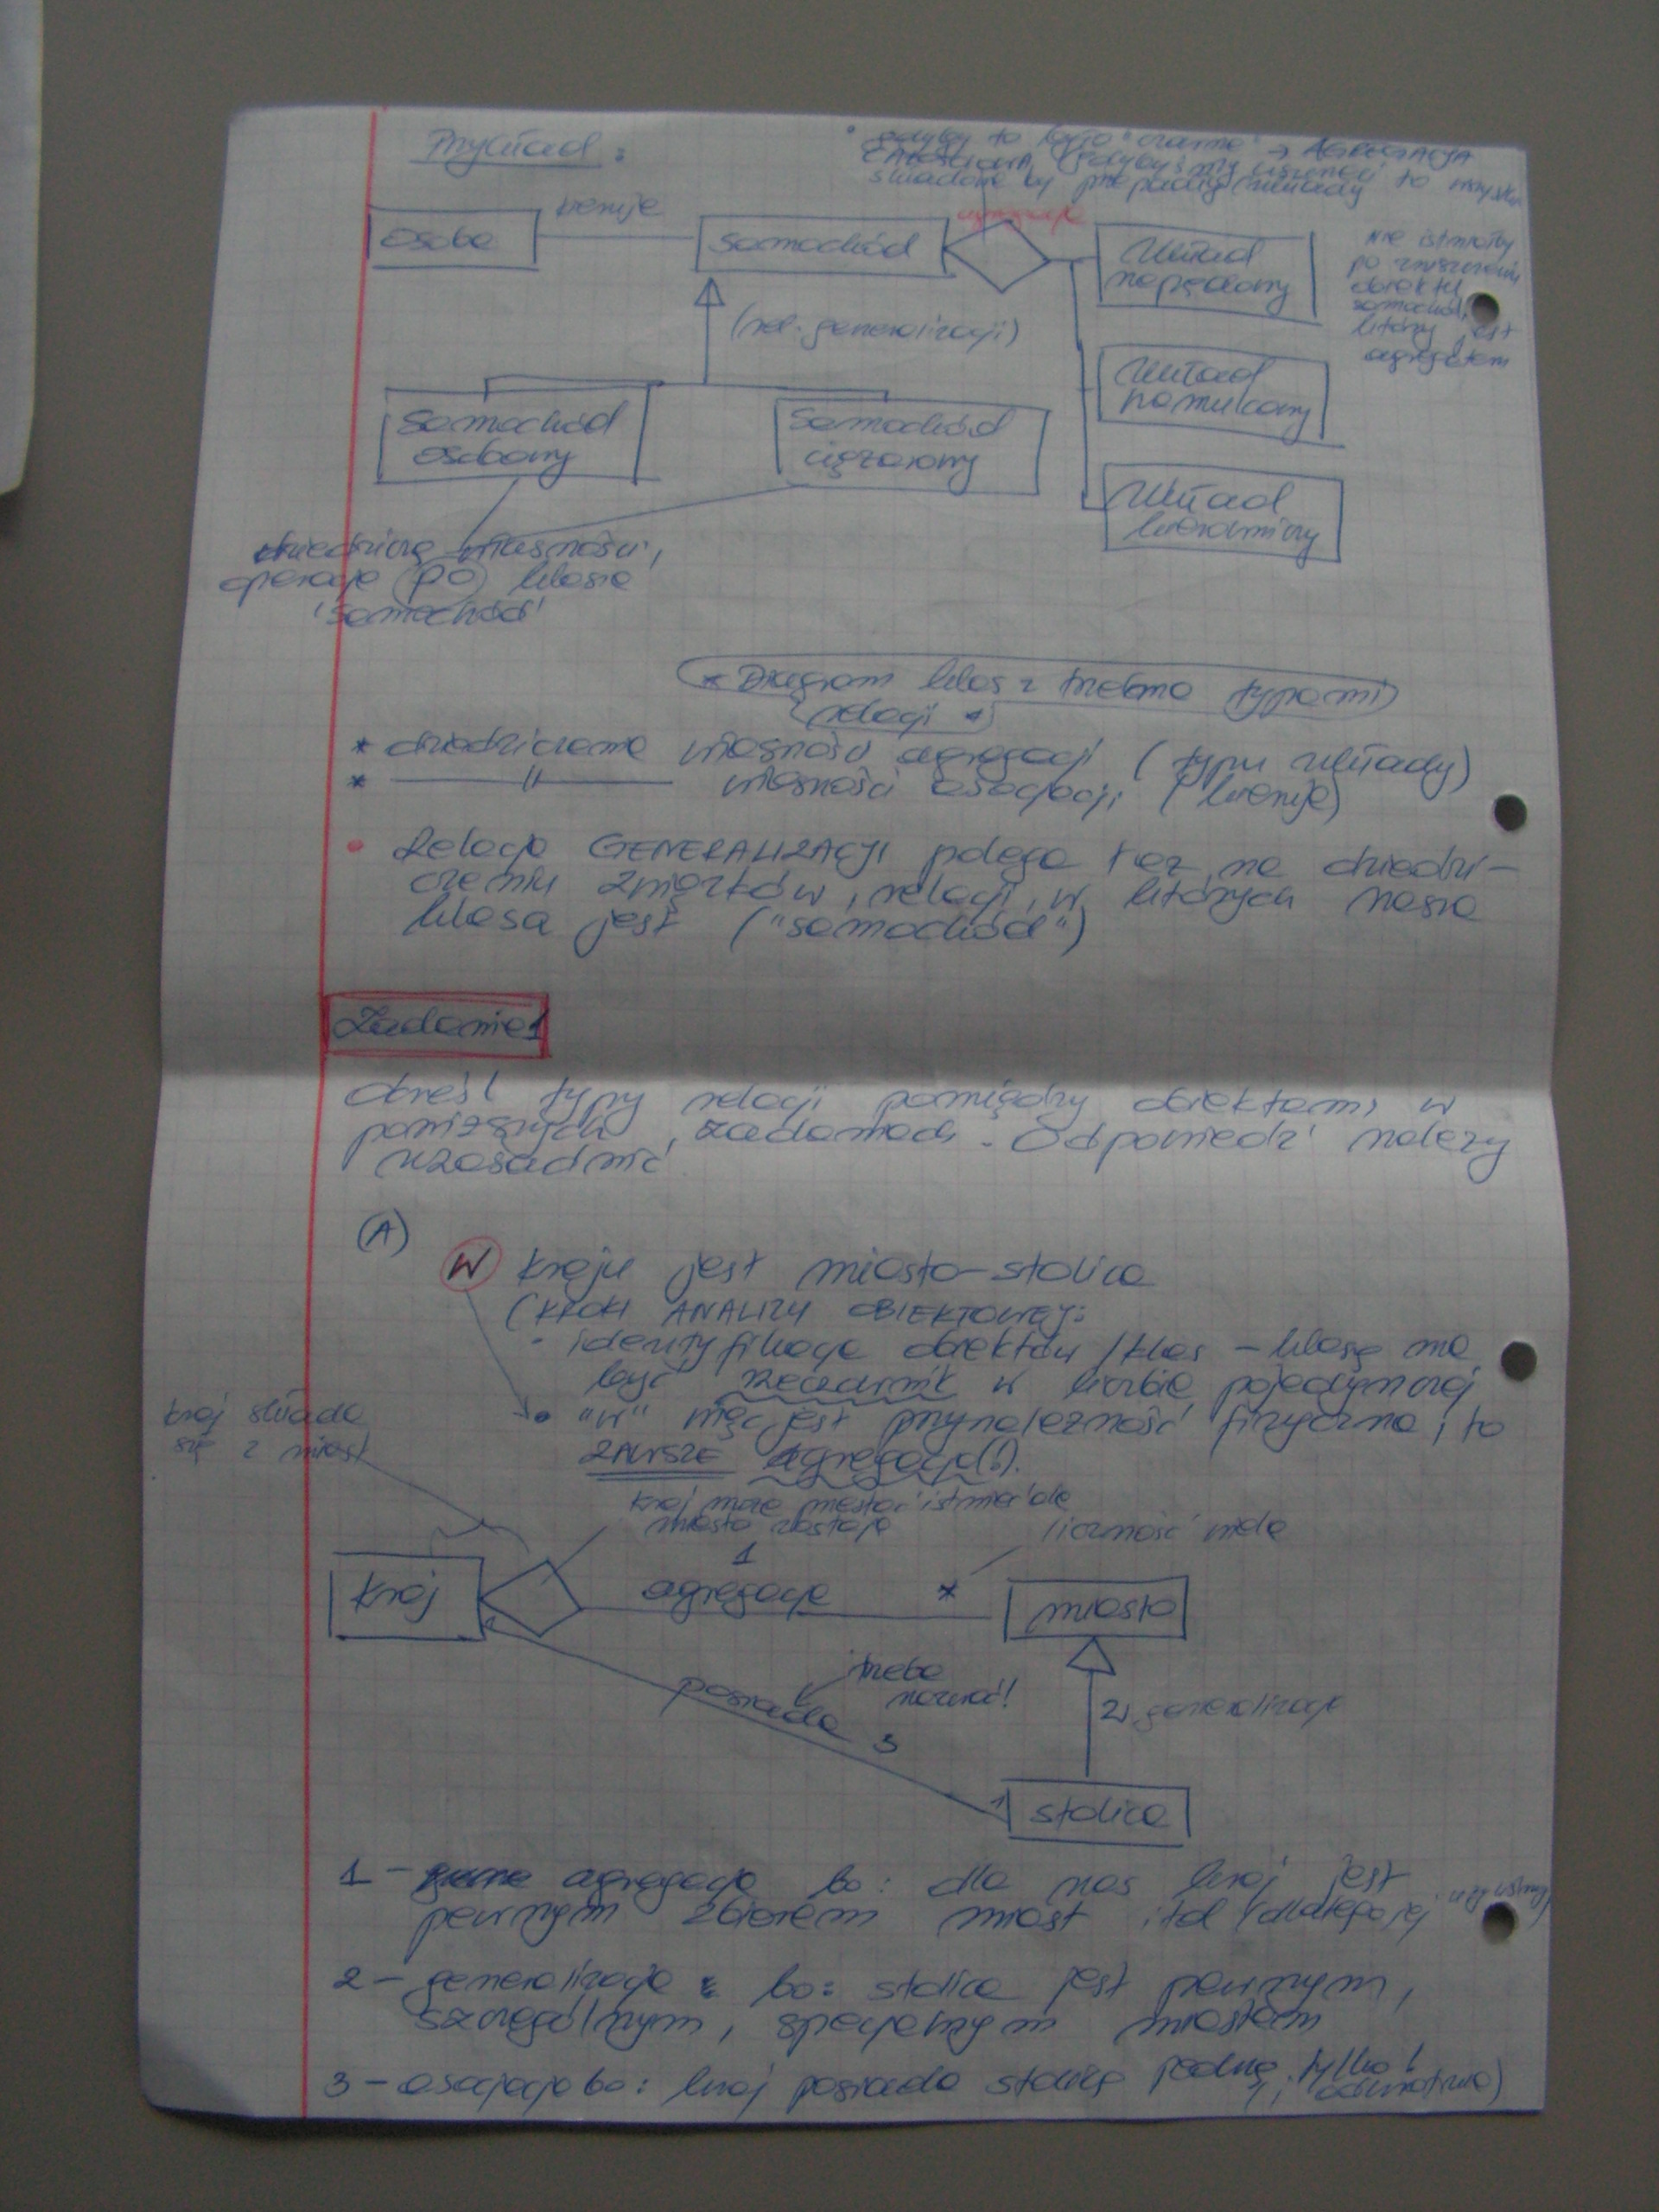 Przykład:
* gdyby to było "czarne" → AGREGACJA
CAŁKOWITA (gdybyśmy usunęli to wszystkie
składowe by przepadły) układy
kieruje
agregacja
osoba
samochód
Układ
napędowy
nie istniałby
po zniszczeniu
obiektu
samochód,
który jest
agregatem
(rel. generalizacji)
Układ
hamulcowy
samochód
osobowy
samochód
ciężarowy
Układ
kierowniczy
dziedziczą własności,
operacje po klasie
'samochód'
* Diagram klas z trzema typami
relacji *
* dziedziczenie własności agregacji (typu układy)
* —— " —— własności asocjacji (kieruje)
• Relacja GENERALIZACJI polega też na dziedzi-
czeniu związków, relacji, w których nasza
klasa jest ("samochód")
Zadanie 1
Określ typy relacji pomiędzy obiektami w
poniższych zadaniach. Odpowiedź należy
uzasadnić
(A)
W kraju jest miasto-stolica
(KROKI ANALIZY OBIEKTOWEJ:
• identyfikacja obiektów/klas – klasą ma
być rzeczownik w liczbie pojedynczej
• "w" więc jest przynależność fizyczna i to
ZAWSZE agregacja(!).
kraj składa
się z miast
kraj może przestać istnieć ale
miasta zostają
liczność wiele
1
kraj
agregacja
*
miasto
trzeba
nazwać!
posiada 3
2 generalizacja
1
stolica
1 – agregacja bo: dla nas kraj jest
pewnym zbiorem miast itd (dlatego jej
2 – generalizacja bo: stolica jest pewnym,
szczególnym, specjalnym miastem
3 – asocjacja bo: kraj posiada stolicę jedną tylko!